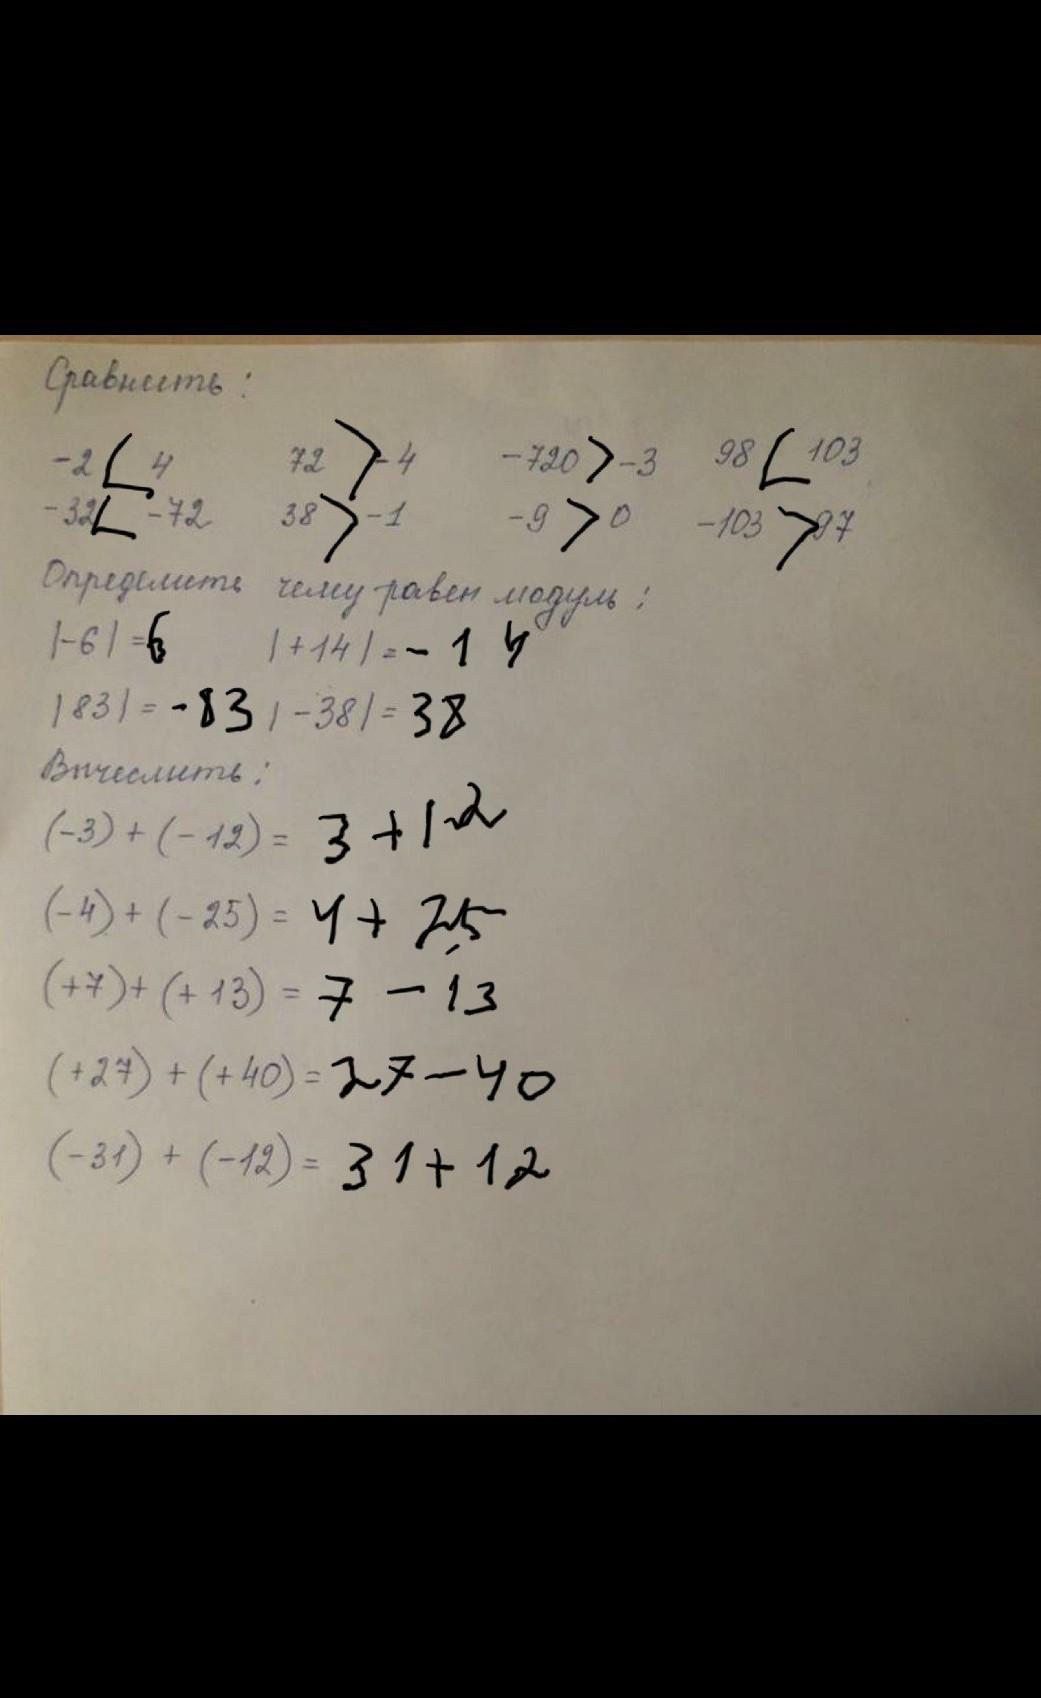 Сравнить:
-2 < 4 72 > -4 -720 > -3 98 < 103
-32 < -72 38 > -1 -9 > 0 -103 > 97
Определить чему равен модуль:
|-6| = 6 |+14| = - 14
|83| = -83 |-38| = 38
Вычеслить:
(-3) + (-12) = 3 + 12
(-4) + (-25) = 4 + 25
(+7) + (+13) = 7 - 13
(+27) + (+40) = 27 - 40
(-31) + (-12) = 31 + 12